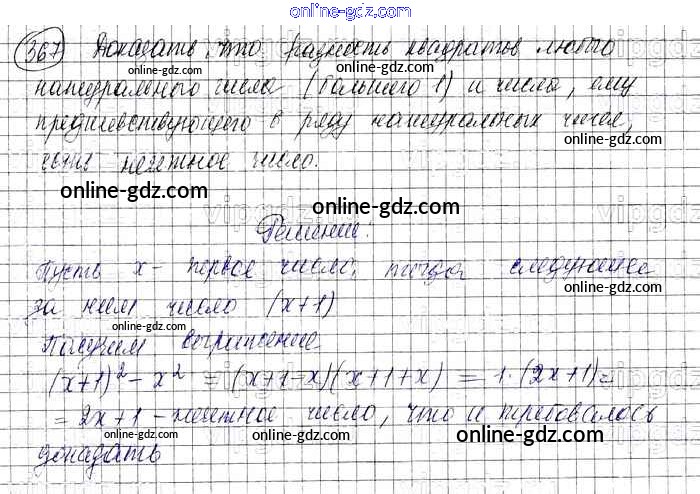 online-gdz.com
367 Доказать, что разность квадратов любого
натурального числа (большего 1) и числа, ему
online-gdz.com
предшевствующего в ряду натуральных чисел,
есть нечетное число.
online-gdz.com
online-gdz.com
online-gdz.com
Решение:
Пусть x - первое число, тогда следующее
online-gdz.com
за ним число (x+1)
online-gdz.com
online-gdz.com
Получим выражение
online-gdz.com
(x+1)² - x² = (x+1-x)(x+1+x) = 1·(2x+1)=
= 2x+1 - нечетное число, что и требовалось
online-gdz.com
online-gdz.com
online-gdz.com
доказать